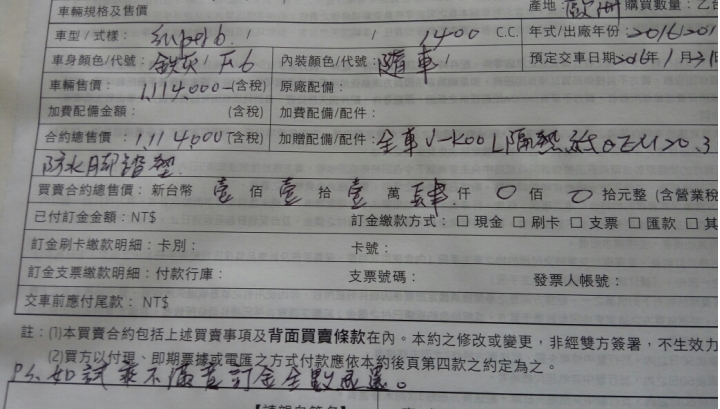 車輛規格及售價 產地：歐洲 購買數量：乙台
車型 / 式樣： superb. 1 1400 C.C. 年式/出廠年份：2016/201
車身顏色/代號：鐵灰 / F6 內裝顏色/代號：隨車 預定交車日期：2016年1月31日
車輛售價：1,114,000-(含稅) 原廠配備：
加費配備金額： (含稅) 加費配備/配件：
合約總售價：1,114,000(含稅) 加贈配備/配件：全車 V-KOOL隔熱紙
防水腳踏墊
買賣合約總售價： 新台幣 壹 佰 壹 拾 壹 萬 肆 仟 0 佰 0 拾元整 (含營業稅
已付訂金金額：NT$ 訂金繳款方式：□ 現金 □ 刷卡 □ 支票 □ 匯款 □ 其
訂金刷卡繳款明細：卡別： 卡號：
訂金支票繳款明細：付款行庫： 支票號碼： 發票人帳號：
交車前應付尾款： NT$
註：(1)本買賣合約包括上述買賣事項及背面買賣條款在內。本約之修改或變更，非經雙方簽署，不生效力
(2)買方以付現、即期票據或電匯之方式付款應依本約後頁第四款之約定為之。
PS. 如試乘不滿意訂金全數退還。